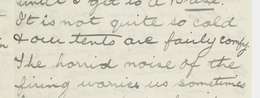 until I get to a Base.
It is not quite so cold
& our tents are fairly comfy.
The horrid noise of the
firing worries us sometimes